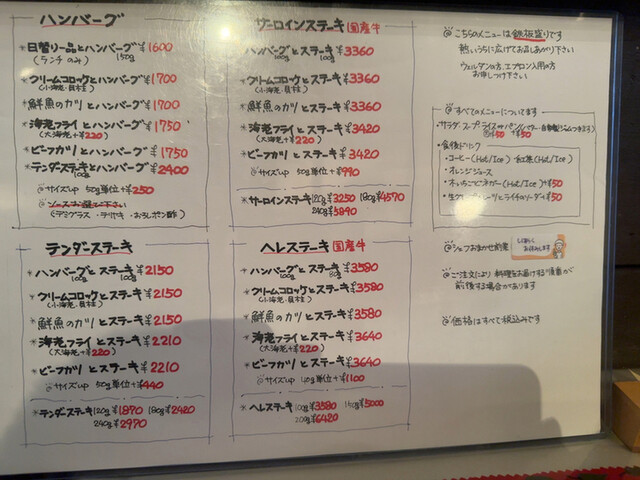 ハンバーグ
*日替り一品とハンバーグ ¥1600
(ランチのみ) 150g
*クリームコロッケとハンバーグ ¥1700
*鮮魚のカツとハンバーグ ¥1700
*海老フライとハンバーグ ¥1750
(大海老+¥220)
*ビーフカツとハンバーグ ¥1750
*テンダーステーキとハンバーグ ¥2400
100g
@サイズup 50g単位+¥250
@ソースお選び下さい
(デミグラス・テリヤキ・おろしポン酢)
サーロインステーキ 国産牛
*ハンバーグとステーキ ¥3360
100g 100g
*クリームコロッケとステーキ ¥3360
*鮮魚のカツとステーキ ¥3360
*海老フライとステーキ ¥3420
(大海老+¥220)
*ビーフカツとステーキ ¥3420
@サイズup 50g単位+¥990
*サーロインステーキ 120g ¥3250 180g ¥4570
240g ¥5890
テンダーステーキ
*ハンバーグとステーキ ¥2150
100g 100g
*クリームコロッケとステーキ ¥2150
*鮮魚のカツとステーキ ¥2150
*海老フライとステーキ ¥2210
(大海老+¥220)
*ビーフカツとステーキ ¥2210
@サイズup 50g単位+¥440
*テンダーステーキ 120g ¥1870 180g ¥2420
240g ¥2970
ヘレステーキ 国産牛
*ハンバーグとステーキ ¥3580
100g 80g
*クリームコロッケとステーキ ¥3580
*鮮魚のカツとステーキ ¥3580
*海老フライとステーキ ¥3640
(大海老+¥220)
*ビーフカツとステーキ ¥3640
@サイズup 50g単位+¥1100
*ヘレステーキ 100g ¥3580 150g ¥5000
200g ¥6420
@こちらのメニューは鉄板盛りです
熱いうちに広げてお召しあがり下さい
ウェルダンの方、エプロン入用の方
お申しつけ下さい
@すべてのメニューについてます
・サラダ・スープ
・食後ドリンク
・コーヒー(Hot/Ice)・紅茶(Hot/Ice)
・オレンジジュース
・木いちごビネガー(Hot/Ice)+¥50
@シェフおまかせ前菜
@ご注文により料理をお届けする順番が
前後する場合があります
@価格はすべて税込みです